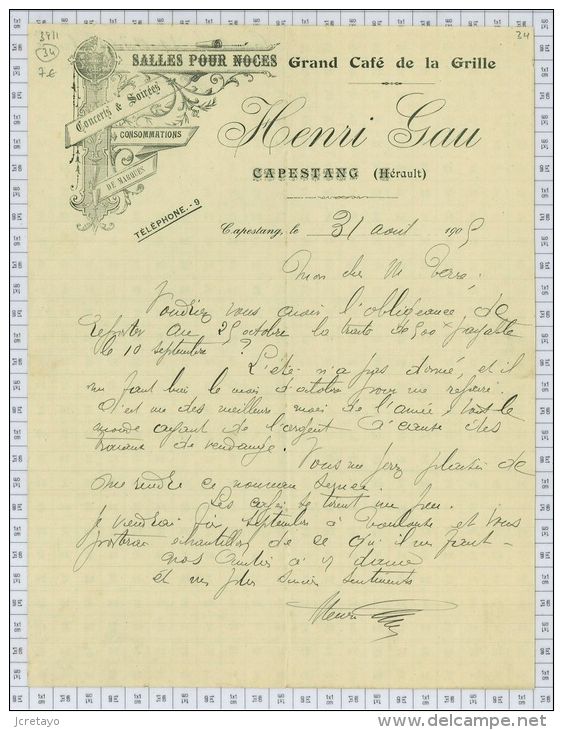 3411
34
34
7 €
SALLES POUR NOCES
Concerts & Soirées
CONSOMMATIONS
DE MARQUES
TÉLÉPHONE.-9
Grand Café de la Grille
Henri Gau
CAPESTANG (Hérault)
Capestang, le 31 aout 1905
Mon cher M
Voudriez vous avoir l'obligeance de
reporter au 25 octobre la traite de 500 f payable
le 10 septembre ?
L'été n'a pas donné et il
me faut le mois d'octobre pour me refaire.
C'est un des meilleurs mois de l'année, tout le
monde ayant de l'argent à cause des
travaux de vendange.
Vous me ferez plaisir de
me rendre ce nouveau service.
Les cafés se tirent un peu.
Je viendrai fin septembre à et vous
porterai echantillon de ce qu'il me faut
nos amitiés à dame
et mes plus sincères sentiments
Henri
jcretayo
www.delcampe.net